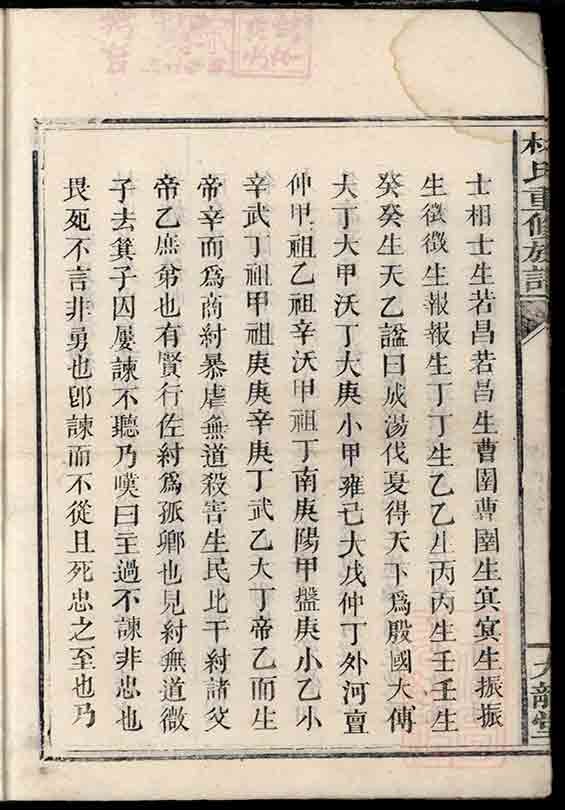 林氏重修族譜
士相士生若昌若昌生曹圉曹圉生㝠㝠生振振
生徵徵生報報生丁丁生乙乙生丙丙生壬壬生
癸癸生天乙謚曰成湯伐夏得天下爲殷國大傳
大丁大甲沃丁大庚小甲雍己大戊仲丁外河亶
仲甲祖乙祖辛沃甲祖丁南庚陽甲盤庚小乙小
辛武丁祖甲祖庚庚辛庚丁武乙大丁帝乙而生
帝辛而爲商紂暴虐無道殺害生民比干紂諸父
帝乙庶弟也有賢行佐紂爲孤卿也見紂無道微
子去箕子囚屡諫不聽乃嘆曰主過不諫非忠也
畏死不言非勇也卽諫而不從且死忠之至也乃
九龍堂